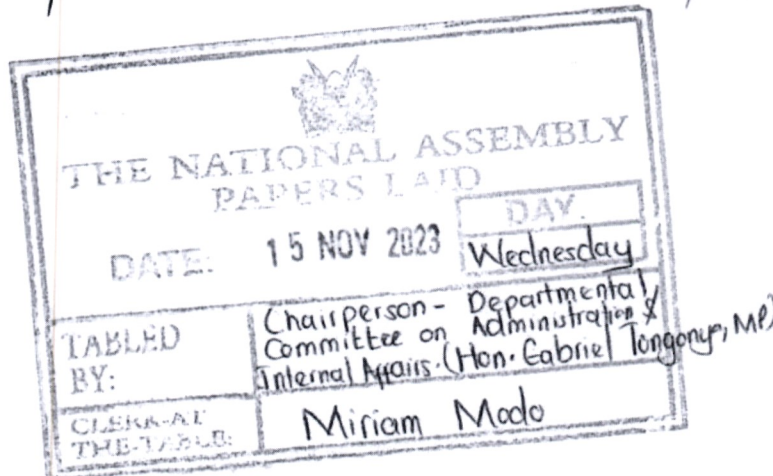 THE NATIONAL ASSEMBLY
PAPERS LAID
DATE: 15 NOV 2023
DAY.
Wednesday
TABLED BY:
Chairperson - Departmental
Committee on Administration &
Internal Affairs. (Hon. Gabriel Tongonyo, MP)
CLERK-AT THE-TABLE:
Miriam Modo